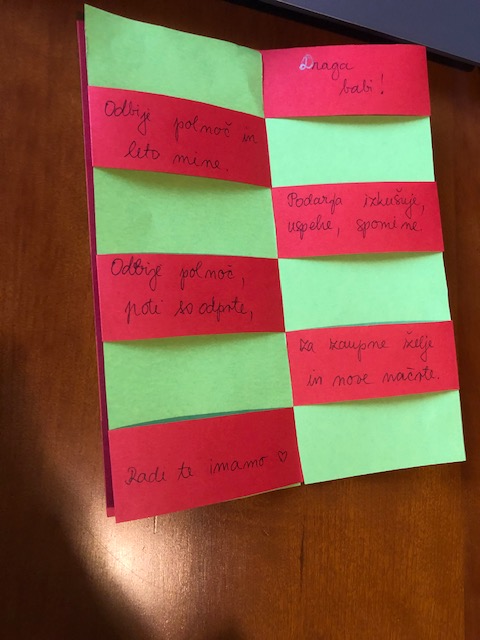 Draga
babi!
Odbije polnoč in
leto mine.
Podarja izkušnje,
uspehe, spomine
Odbije polnoč,
poti so odprte,
za zaupne želje
in nove načrte.
Rade te imamo ♡